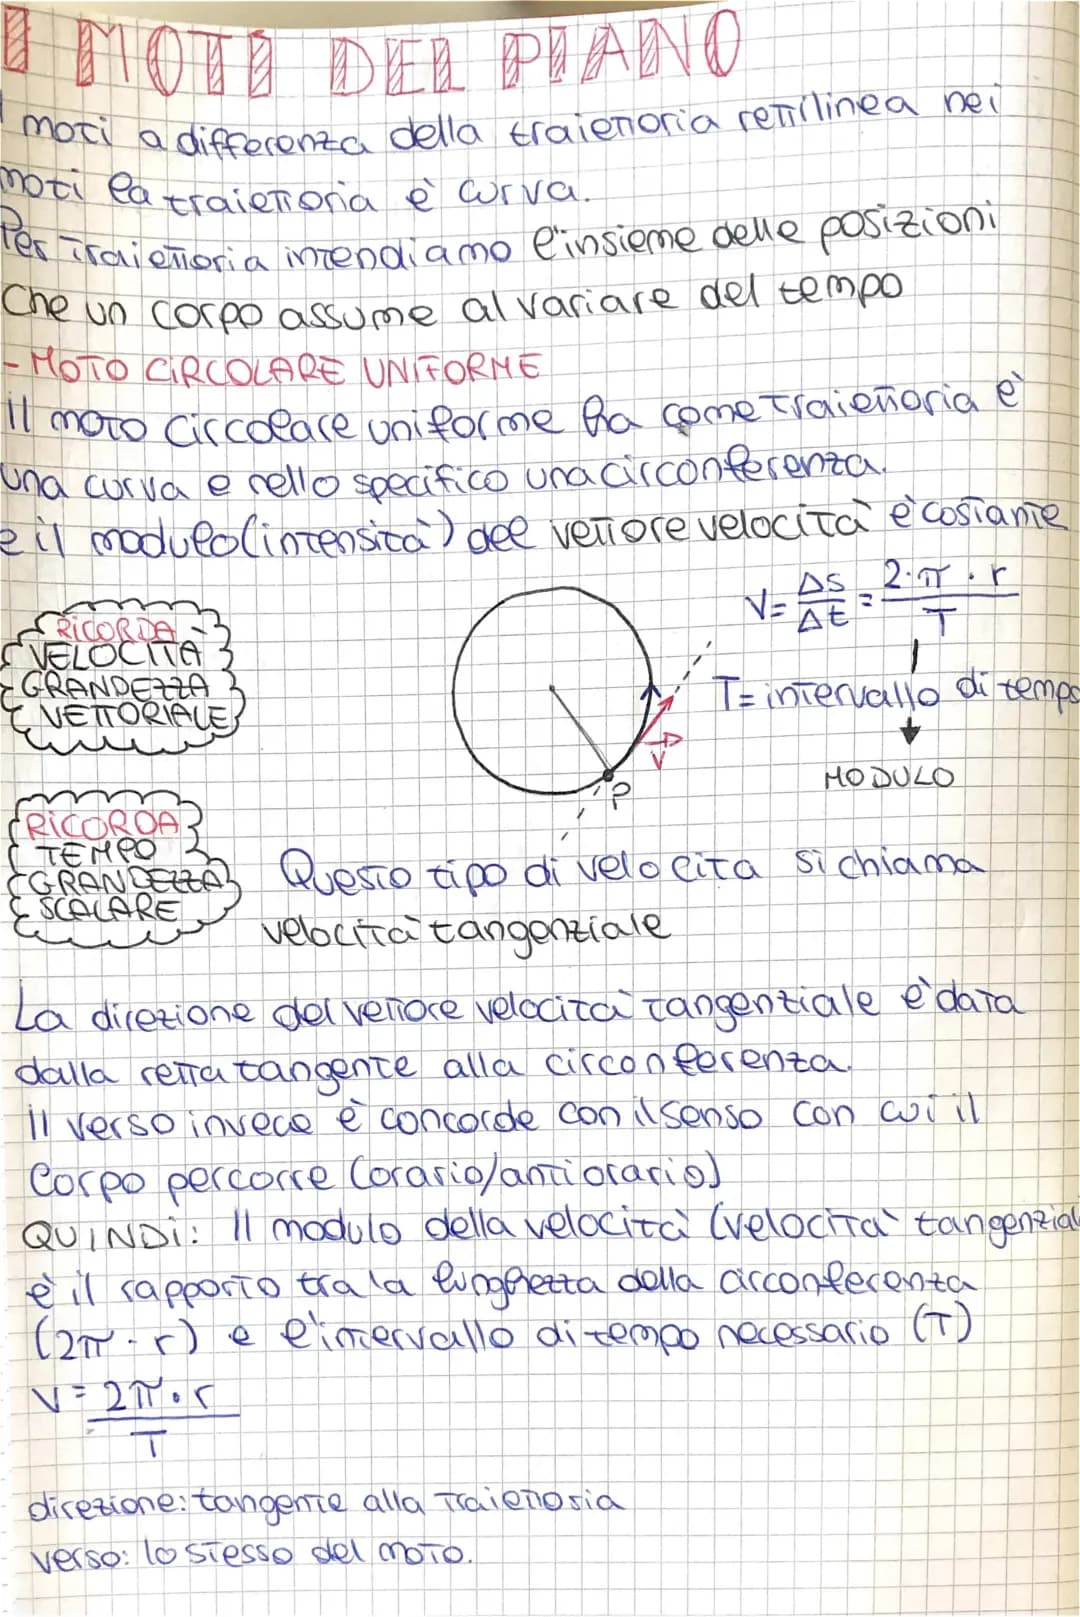 I MOTI DEL PIANO
I moti a differenza della traiettoria rettilinea nei
moti la traiettoria è curva.
Per traiettoria intendiamo l'insieme delle posizioni
Che un corpo assume al variare del tempo
- MOTO CIRCOLARE UNIFORME
il moto circolare uniforme ha come traiettoria è
una curva e nello specifico una circonferenza.
e il modulo (intensità) del vettore velocità è costante
V = ΔS/Δt = 2·π·r/T
RICORDA
VELOCITÀ
GRANDEZZA
VETTORIALE
T = intervallo di tempo
V
MODULO
P
RICORDA
TEMPO
GRANDEZZA
SCALARE
Questo tipo di velocita si chiama
velocità tangenziale
La direzione del vettore velocità tangenziale è data
dalla retta tangente alla circonferenza.
il verso invece è concorde con il senso con cui il
Corpo percorre (orario/antiorario)
QUINDI: Il modulo della velocità (velocità tangenziale
è il rapporto tra la lunghezza della circonferenza
(2π·r) e l'intervallo di tempo necessario (T)
V = 2π·r
T
direzione: tangente alla traiettoria
verso: lo stesso del moto.